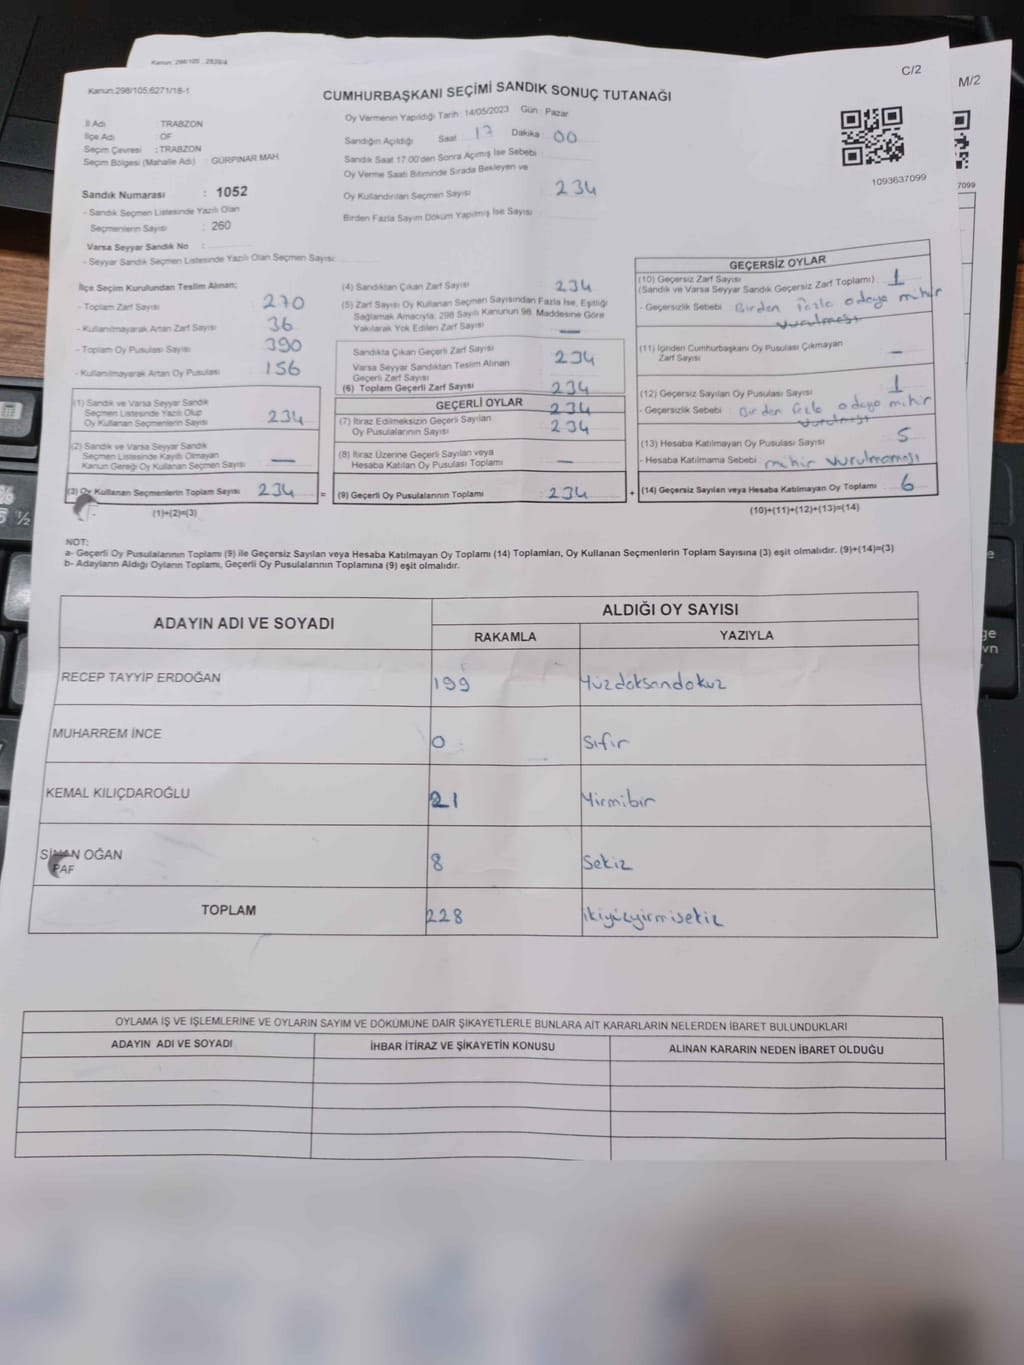 Kanun: 298/105
C/2
M/2
Kanun:298/105;6271/18-1
CUMHURBAŞKANI SEÇİMİ SANDIK SONUÇ TUTANAĞI
İl Adı : TRABZON
İlçe Adı : OF
Seçim Çevresi : TRABZON
Seçim Bölgesi (Mahalle Adı) : GÜRPINAR MAH.
Sandık Numarası : 1052
- Sandık Seçmen Listesinde Yazılı Olan
Seçmenlerin Sayısı : 260
Varsa Seyyar Sandık No :
- Seyyar Sandık Seçmen Listesinde Yazılı Olan Seçmen Sayısı:
Oy Vermenin Yapıldığı Tarih : 14/05/2023 Gün : Pazar
Sandığın Açıldığı Saat 17 Dakika 00
Sandık Saat 17.00'den Sonra Açılmış İse Sebebi :
Oy Verme Saati Bitiminde Sırada Bekleyen ve
Oy Kullandırılan Seçmen Sayısı : 234
Birden Fazla Sayım Döküm Yapılmış İse Sayısı :
1093637099
7099
İlçe Seçim Kurulundan Teslim Alınan;
- Toplam Zarf Sayısı : 270
- Kullanılmayarak Artan Zarf Sayısı : 36
- Toplam Oy Pusulası Sayısı : 390
- Kullanılmayarak Artan Oy Pusulası : 156
(1) Sandık ve Varsa Seyyar Sandık
Seçmen Listesinde Yazılı Olup
Oy Kullanan Seçmenlerin Sayısı : 234
(2) Sandık ve Varsa Seyyar Sandık
Seçmen Listesinde Kayıtlı Olmayan
Kanun Gereği Oy Kullanan Seçmen Sayısı : —
(3) Oy Kullanan Seçmenlerin Toplam Sayısı : 234 =
(1)+(2)=(3)
(4) Sandıktan Çıkan Zarf Sayısı : 234
(5) Zarf Sayısı Oy Kullanan Seçmen Sayısından Fazla İse, Eşitliği
Sağlamak Amacıyla; 298 Sayılı Kanunun 98. Maddesine Göre
Yakılarak Yok Edilen Zarf Sayısı : —
Sandıkta Çıkan Geçerli Zarf Sayısı : 234
Varsa Seyyar Sandıktan Teslim Alınan
Geçerli Zarf Sayısı
(6) Toplam Geçerli Zarf Sayısı : 234
GEÇERLİ OYLAR 234
(7) İtiraz Edilmeksizin Geçerli Sayılan
Oy Pusulalarının Sayısı : 234
(8) İtiraz Üzerine Geçerli Sayılan veya
Hesaba Katılan Oy Pusulası Toplamı : —
(9) Geçerli Oy Pusulalarının Toplamı : 234 +
GEÇERSİZ OYLAR
(10) Geçersiz Zarf Sayısı
(Sandık ve Varsa Seyyar Sandık Geçersiz Zarf Toplamı) : 1
- Geçersizlik Sebebi : Birden fazla adaya mühür
vurulması
(11) İçinden Cumhurbaşkanı Oy Pusulası Çıkmayan
Zarf Sayısı : —
(12) Geçersiz Sayılan Oy Pusulası Sayısı : 1
- Geçersizlik Sebebi : Birden fazla adaya mühür
vurulması
(13) Hesaba Katılmayan Oy Pusulası Sayısı : 5
- Hesaba Katılmama Sebebi : mühür vurulmaması
(14) Geçersiz Sayılan veya Hesaba Katılmayan Oy Toplamı : 6
(10)+(11)+(12)+(13)=(14)
NOT:
a- Geçerli Oy Pusulalarının Toplamı (9) ile Geçersiz Sayılan veya Hesaba Katılmayan Oy Toplamı (14) Toplamları, Oy Kullanan Seçmenlerin Toplam Sayısına (3) eşit olmalıdır. (9)+(14)=(3)
b- Adayların Aldığı Oyların Toplamı, Geçerli Oy Pusulalarının Toplamına (9) eşit olmalıdır.
ADAYIN ADI VE SOYADI
ALDIĞI OY SAYISI
RAKAMLA YAZIYLA
RECEP TAYYİP ERDOĞAN 199 Yüzdoksandokuz
MUHARREM İNCE 0 Sıfır
KEMAL KILIÇDAROĞLU 21 Yirmibir
SİNAN OĞAN 8 Sekiz
PAF
TOPLAM 228 ikiyüzyirmisekiz
OYLAMA İŞ VE İŞLEMLERİNE VE OYLARIN SAYIM VE DÖKÜMÜNE DAİR ŞİKAYETLERLE BUNLARA AİT KARARLARIN NELERDEN İBARET BULUNDUKLARI
ADAYIN ADI VE SOYADI İHBAR İTİRAZ VE ŞİKAYETİN KONUSU ALINAN KARARIN NEDEN İBARET OLDUĞU